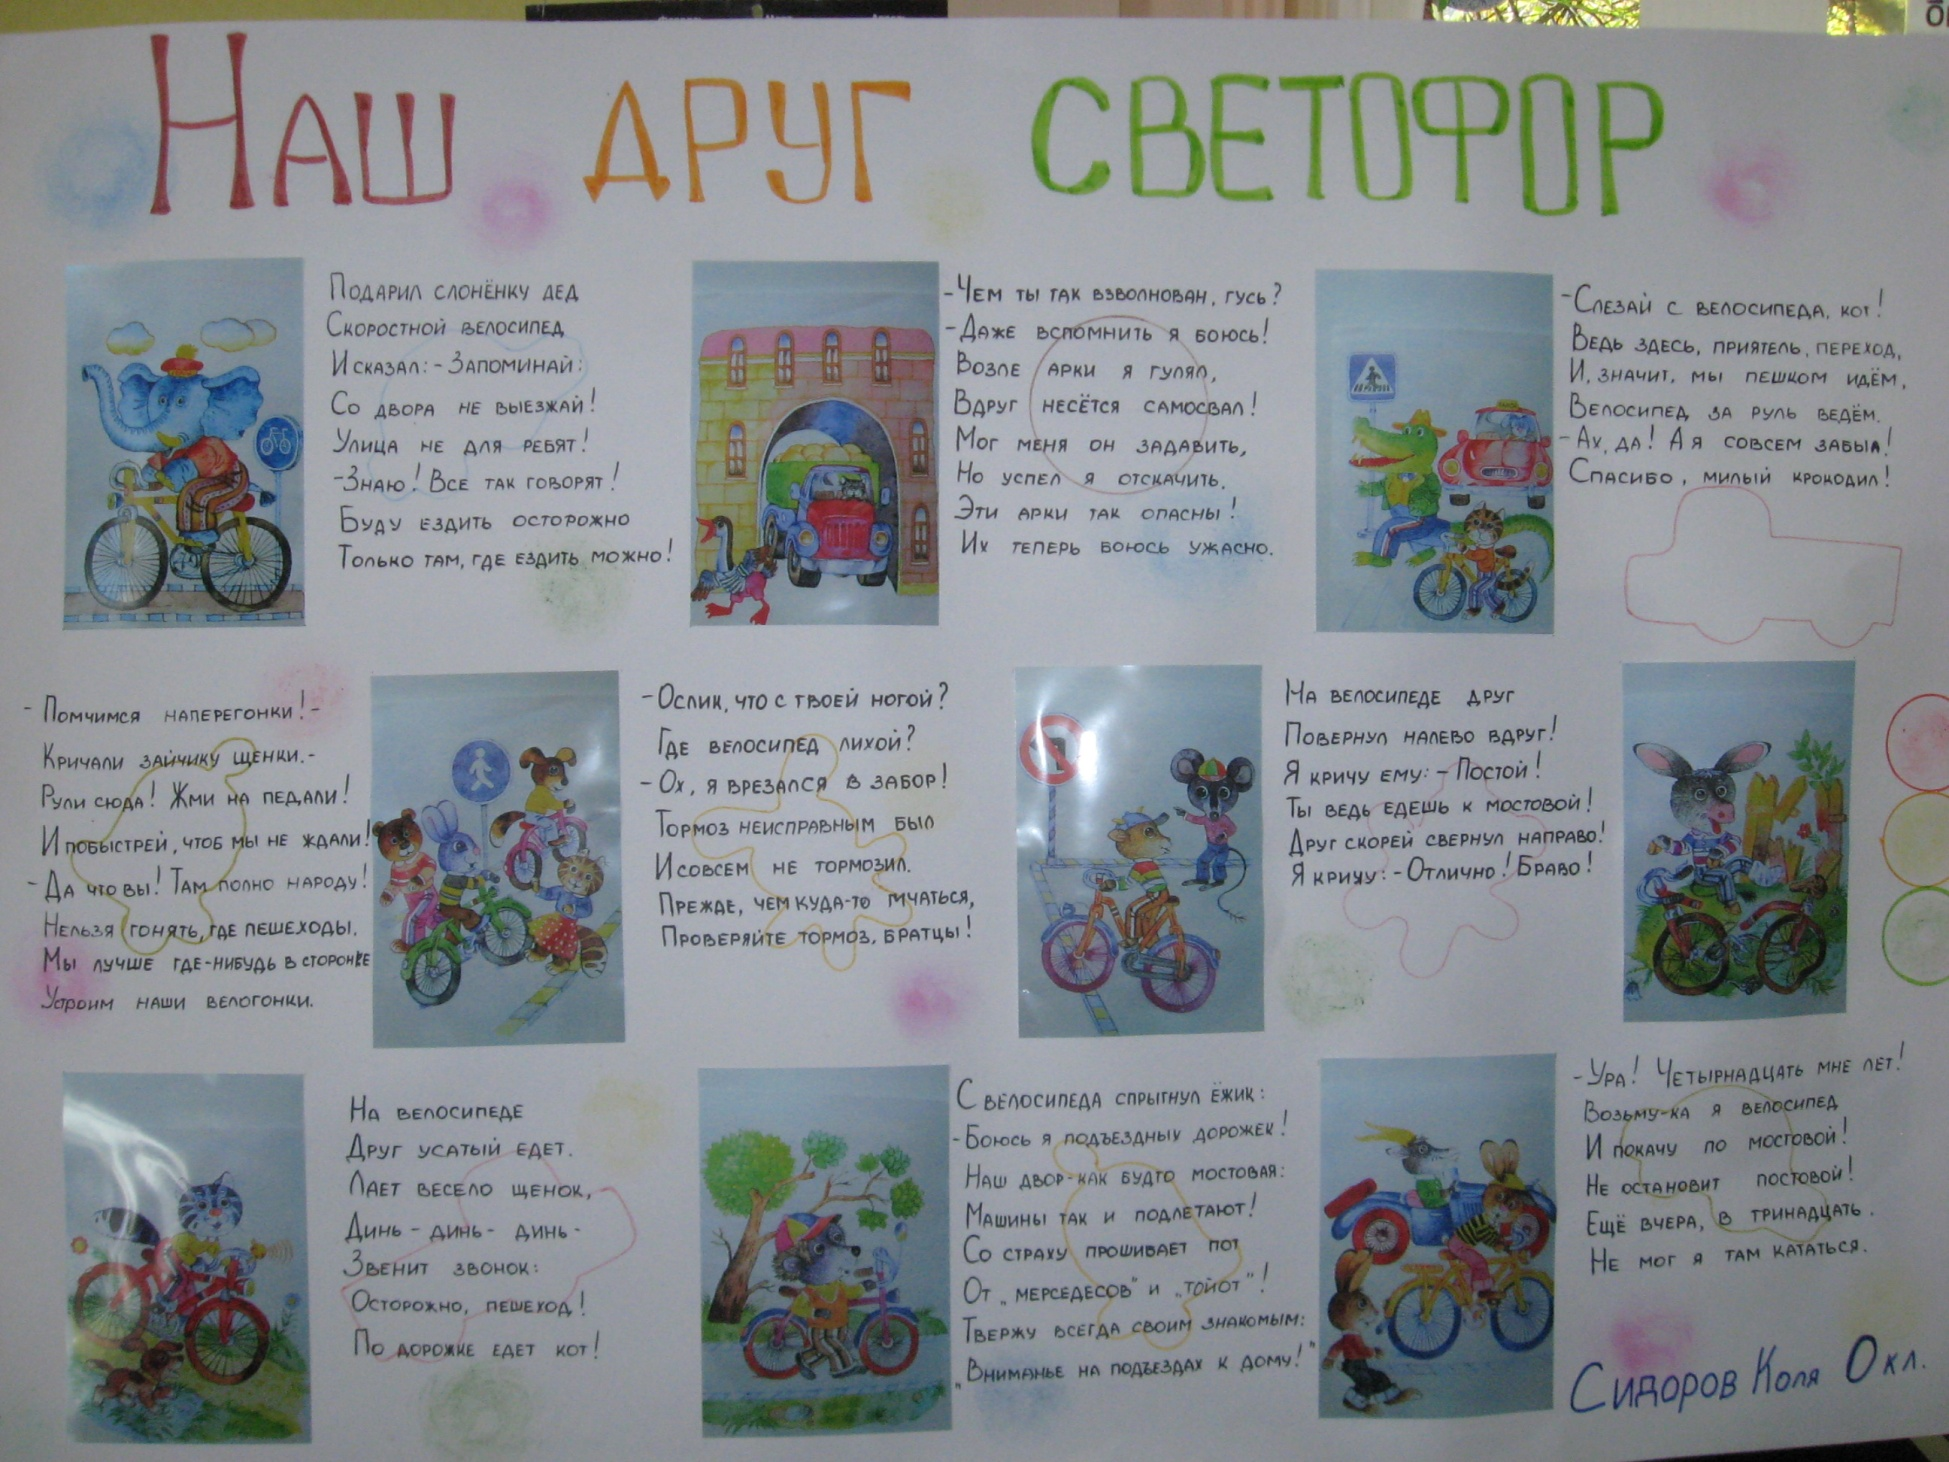 Наш друг светофор
Подарил слонёнку дед
Скоростной велосипед
И сказал: - Запоминай:
Со двора не выезжай!
Улица не для ребят!
- Знаю! Все так говорят!
Буду ездить осторожно
Только там, где ездить можно!
- Чем ты так взволнован, гусь?
- Даже вспомнить я боюсь!
Возле арки я гулял,
Вдруг несётся самосвал!
Мог меня он задавить,
Но успел я отскачить.
Эти арки так опасны!
Их теперь боюсь ужасно.
- Слезай с велосипеда, кот!
Ведь здесь, приятель, переход,
И, значит, мы пешком идём,
Велосипед за руль ведём.
- Ах, да! А я совсем забыл!
Спасибо, милый крокодил!
- Помчимся наперегонки! -
Кричали зайчику щенки. -
Рули сюда! Жми на педали!
И побыстрей, чтоб мы не ждали!
- Да что вы! Там полно народу!
Нельзя гонять, где пешеходы.
Мы лучше где-нибудь в сторонке
Устроим наши велогонки.
- Ослик, что с твоей ногой?
Где велосипед лихой?
- Ох, я врезался в забор!
Тормоз неисправным был
И совсем не тормозил.
Прежде, чем куда-то мчаться,
Проверяйте тормоз, братцы!
На велосипеде друг
Повернул налево вдруг!
Я кричу ему: - Постой!
Ты ведь едешь к мостовой!
Друг скорей свернул направо!
Я кричу: - Отлично! Браво!
На велосипеде
Друг усатый едет.
Лает весело щенок,
Динь - динь - динь -
Звенит звонок:
Осторожно, пешеход!
По дорожке едет кот!
С велосипеда спрыгнул ёжик:
- Боюсь я подъездных дорожек!
Наш двор - как будто мостовая:
Машины так и подлетают!
Со страху прошивает пот
От „мерседесов" и „тойот"!
Твержу всегда своим знакомым:
„Вниманье на подъездах к дому!"
- Ура! Четырнадцать мне лет!
Возьму-ка я велосипед
И покачу по мостовой!
Не остановит постовой!
Ещё вчера, в тринадцать.
Не мог я там кататься.
Сидоров Коля 0 кл.